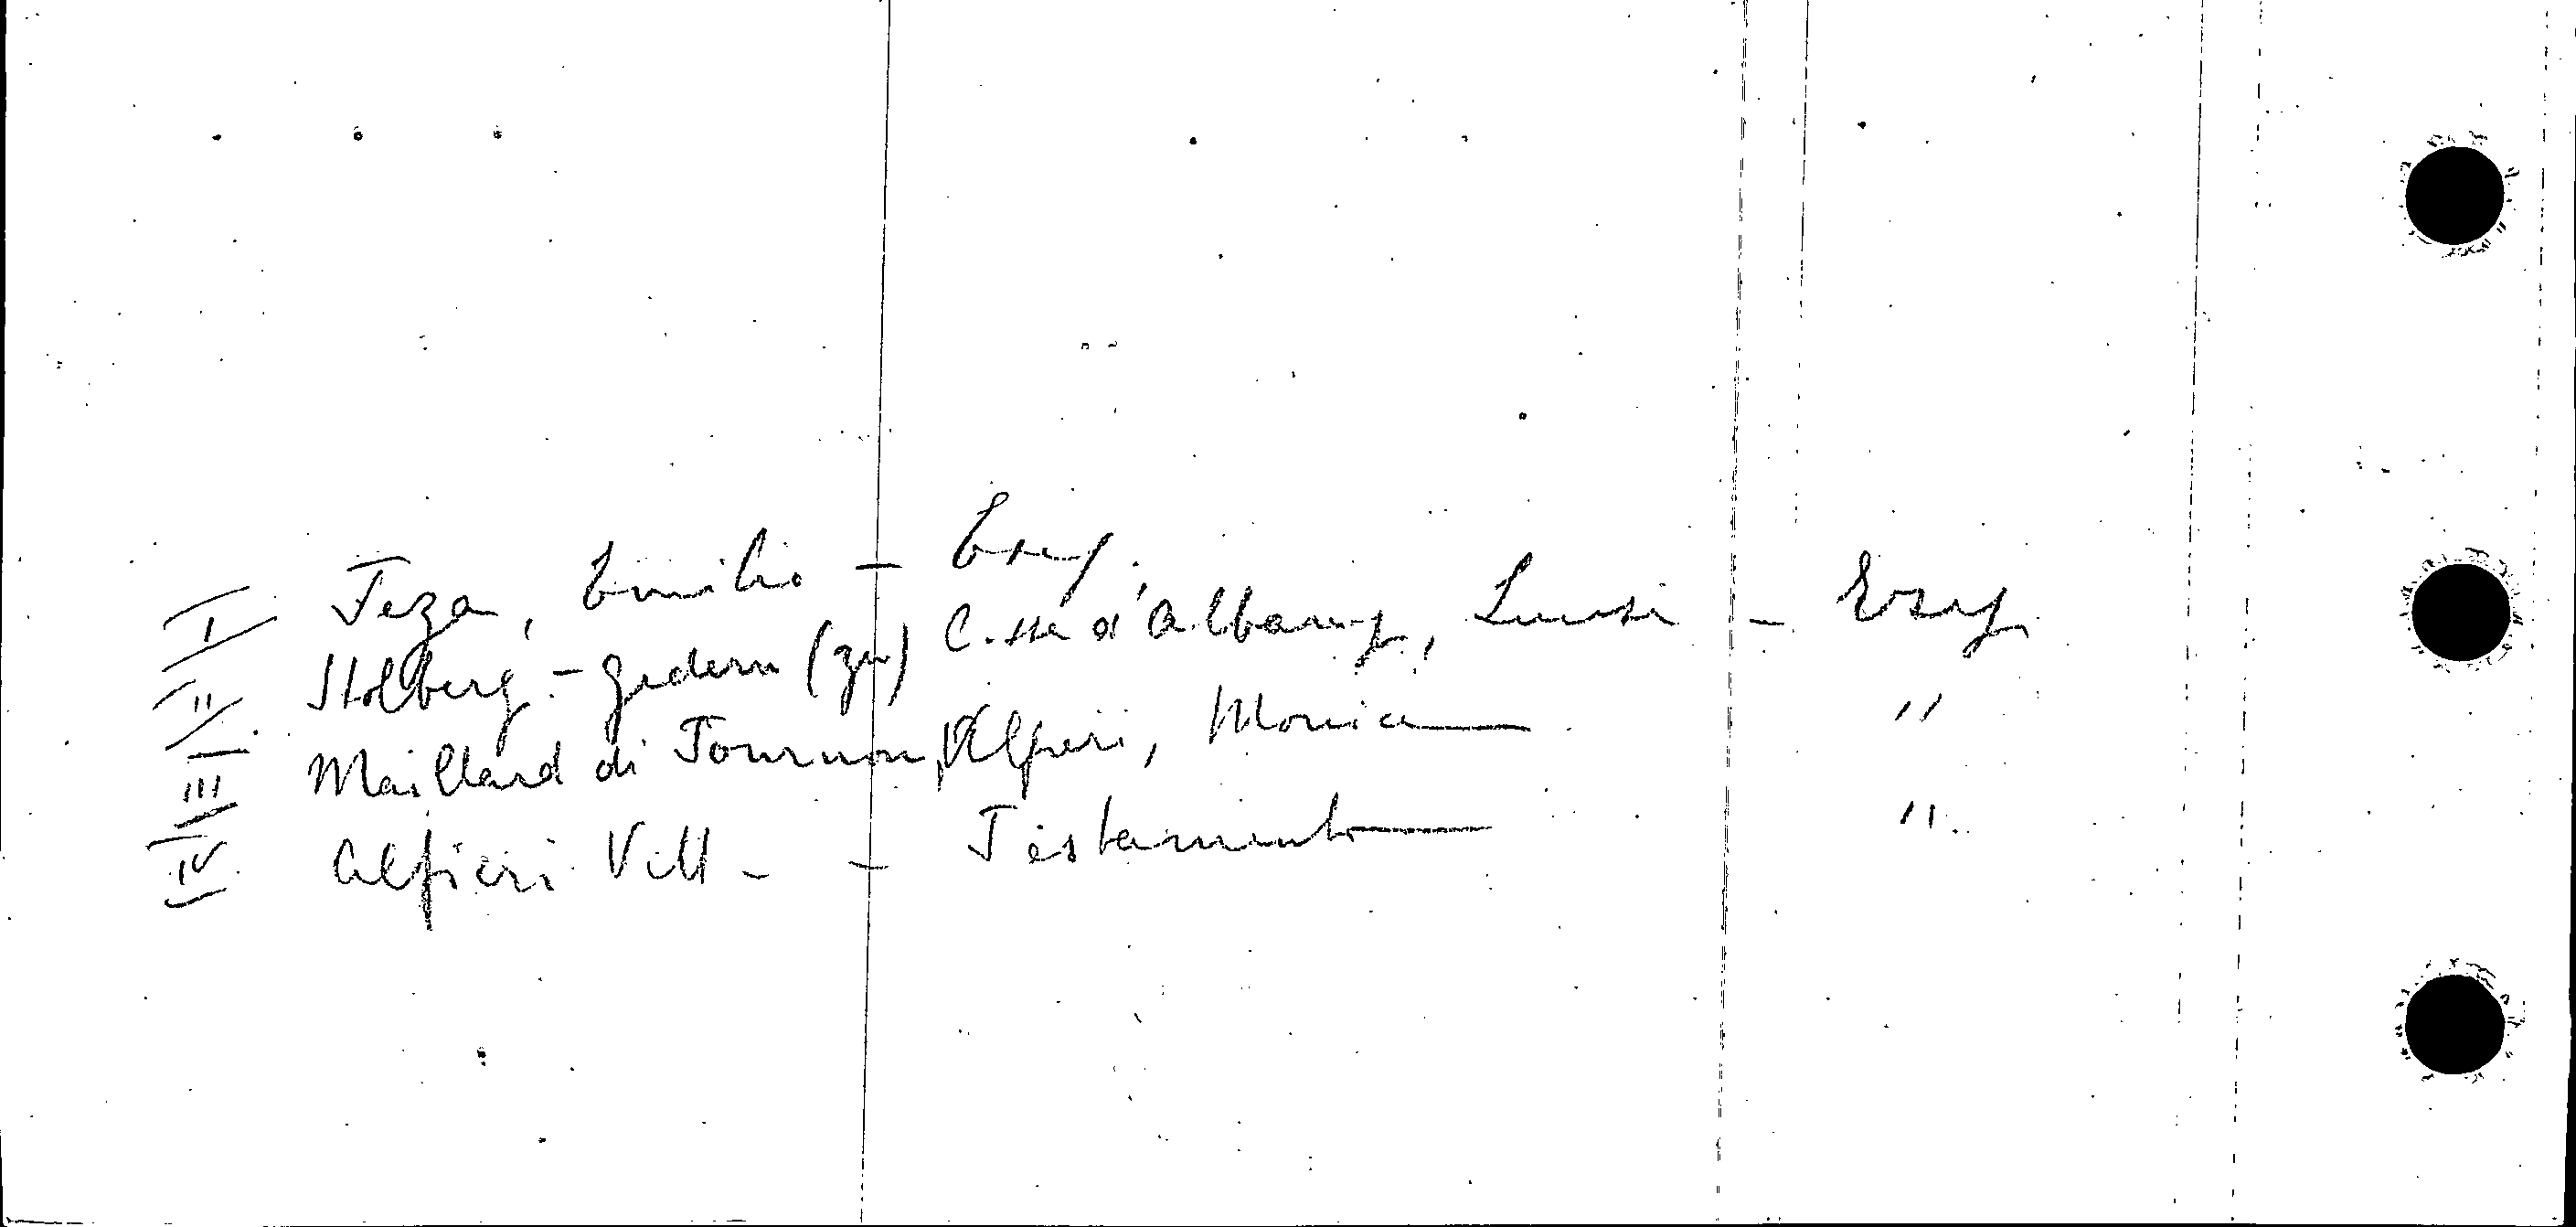 I Teza, Emilio - Esry.
II Stolberg-Gedern (zu) C.ssa d'Albany, Luisa - Ersy
III Maillard di Tournon, Alfieri, Monica "
IV Alfieri Vitt - - Testamento "